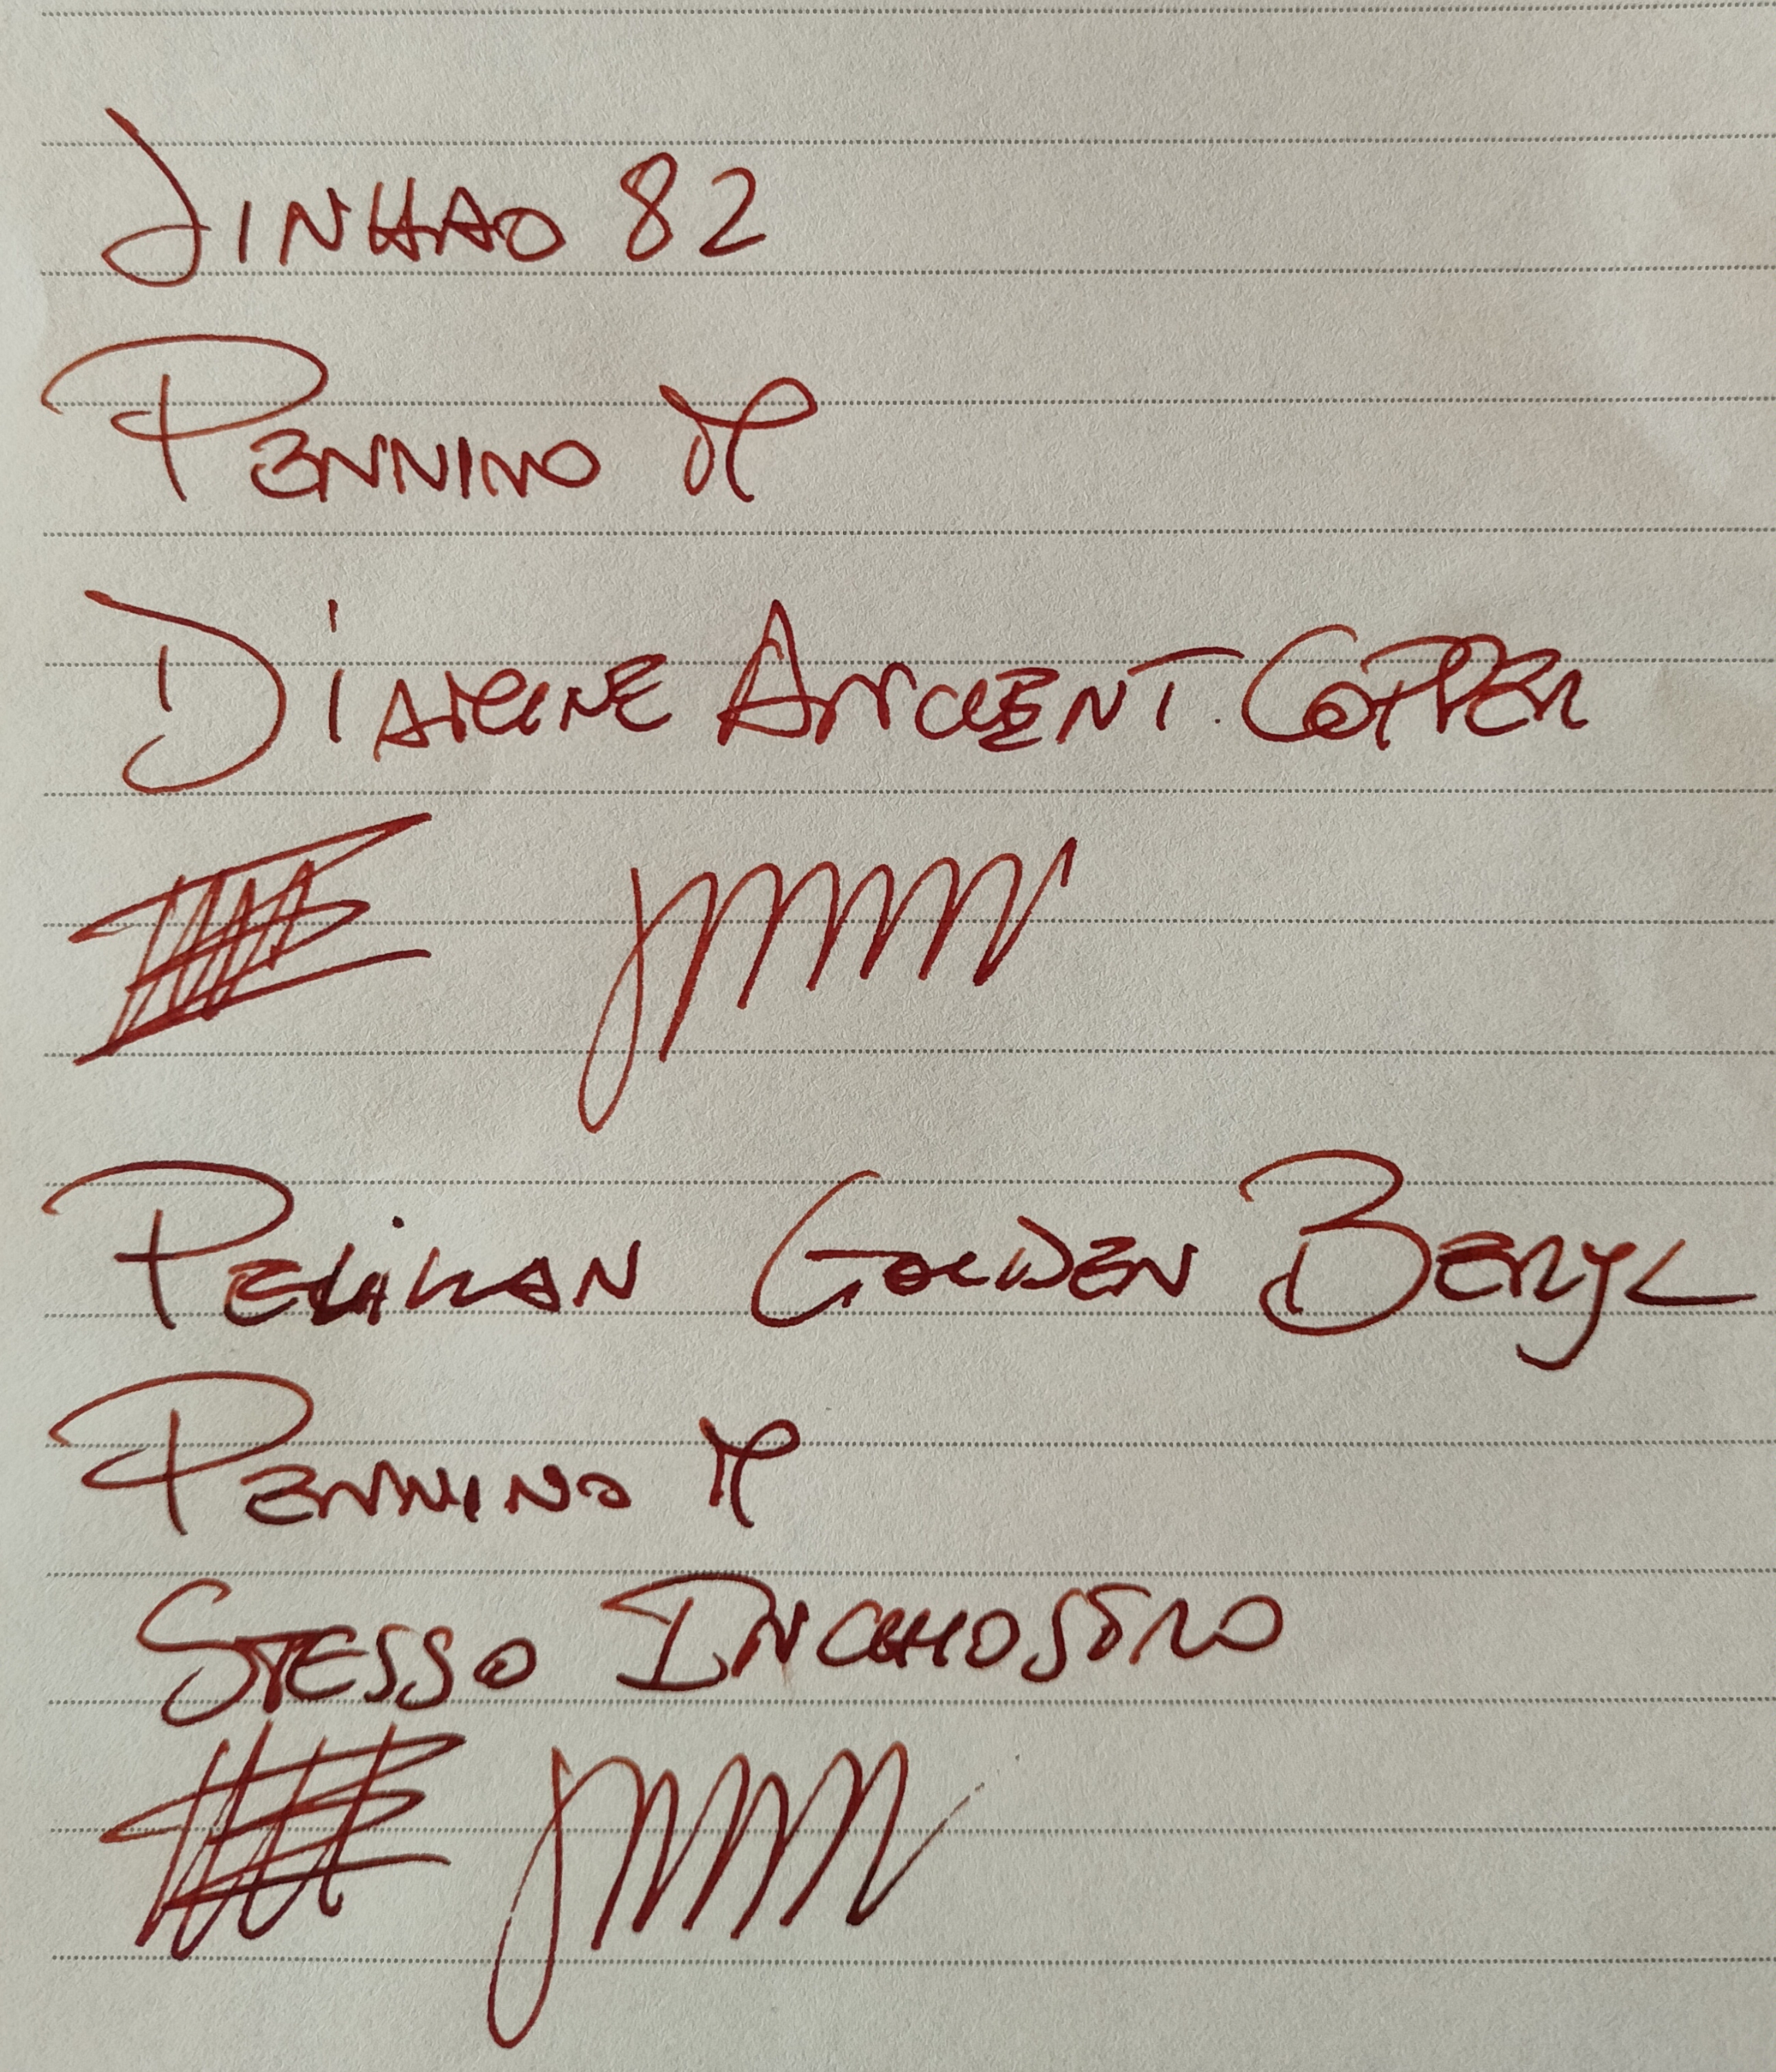 JINHAO 82
PENNINO M
DIAMINE ANCIENT COPPER
PELIKAN GOLDEN BERYL
PENNINO M
STESSO INCHIOSTRO